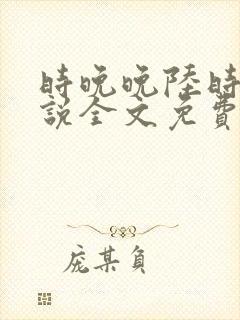 時晚晚陸時
說全文免費
龐某負